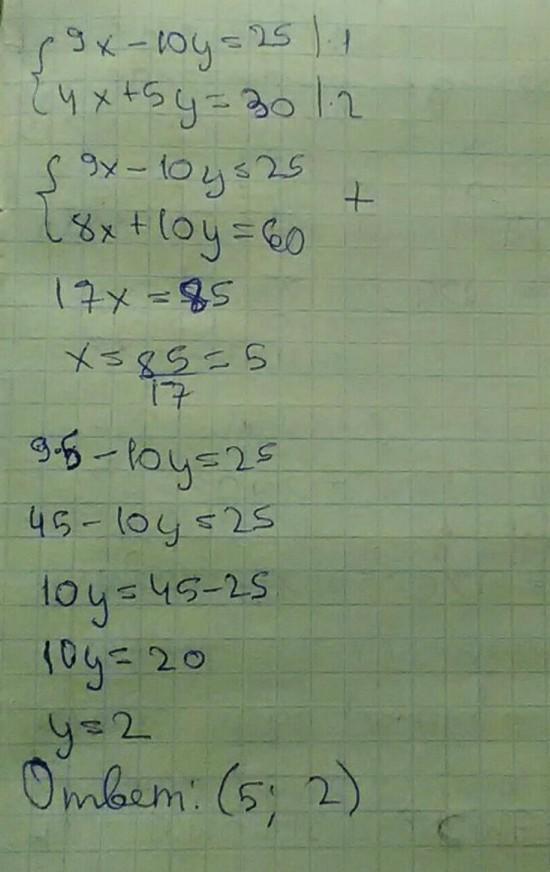 { 9x - 10y = 25 | · 1
4x + 5y = 30 | · 2
{ 9x - 10y = 25
8x + 10y = 60 +
17x = 85
x = 85/17 = 5
9·5 - 10y = 25
45 - 10y = 25
10y = 45 - 25
10y = 20
y = 2
Ответ: (5; 2)